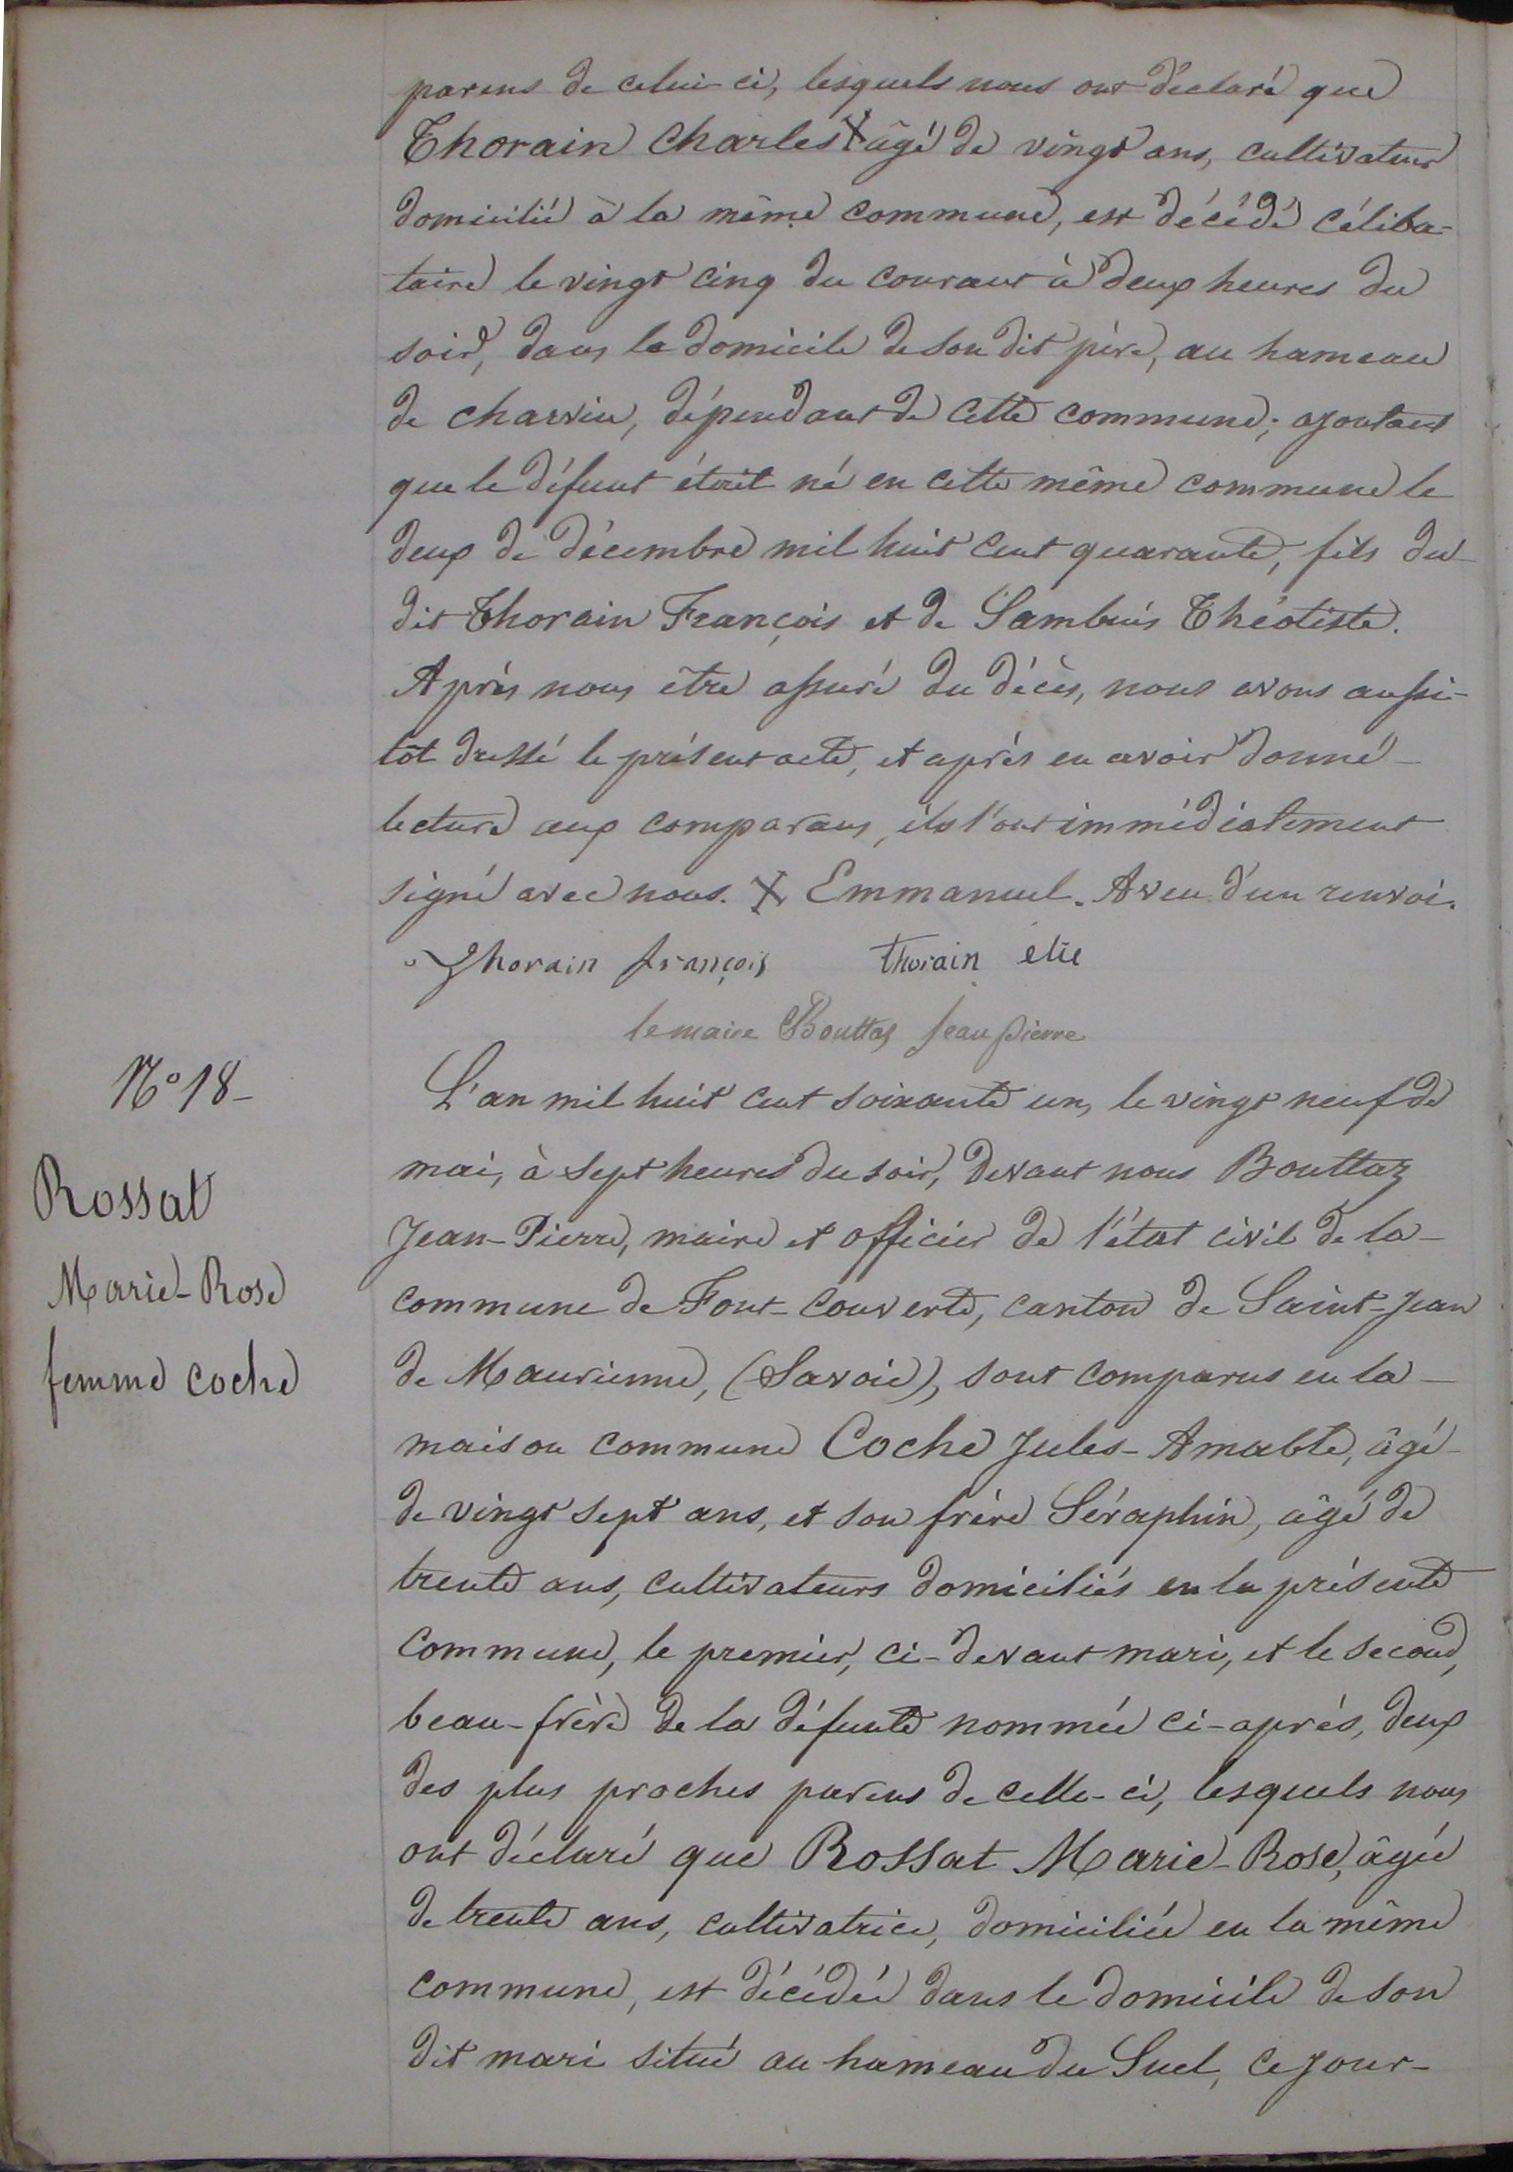 parens de celui-ci, lesquels nous ont déclaré que
Thorain Charles X âgé de vingt ans, cultivateur
domicilié à la même commune, est décédé céliba-
taire le vingt cinq du courant à deux heures du
soir, dans le domicile de son dit père, au hameau
de charvin, dépendant de cette commune; ajoutant
que le défunt était né en cette même commune le
deux de décembre mil huit cent quarante, fils du-
dit Thorain François et de Sambuis Théotiste.
Après nous être assuré du décès, nous avons aussi-
tôt dressé le présent acte, et après en avoir donné
lecture aux comparans, ils l'ont immédiatement
signé avec nous. X Emmanuel. Aveu d'un renvoi.
Thorain françois thorain élie
le maire Bouttaz Jean pierre
N° 18-
Rossat
Marie-Rose
femme Coche
L'an mil huit cent soixante un, le vingt neuf de
mai, à sept heures du soir, devant nous Bouttaz
Jean-Pierre, maire et officier de l'état civil de la
commune de Font-couverte, canton de Saint-Jean
de Maurienne, (Savoie), sont comparus en la
maison commune Coche Jules-Amable, âgé
de vingt sept ans, et son frère Séraphin, âgé de
trente ans, cultivateurs domiciliés en la présente
commune, le premier, ci-devant mari, et le second,
beau-frère de la défunte nommée ci-après, deux
des plus proches parens de celle-ci, lesquels nous
ont déclaré que Rossat Marie-Rose, âgée
de trente ans, cultivatrice, domiciliée en la même
commune, est décédée dans le domicile de son
dit mari situé au hameau du Suel, ce jour-